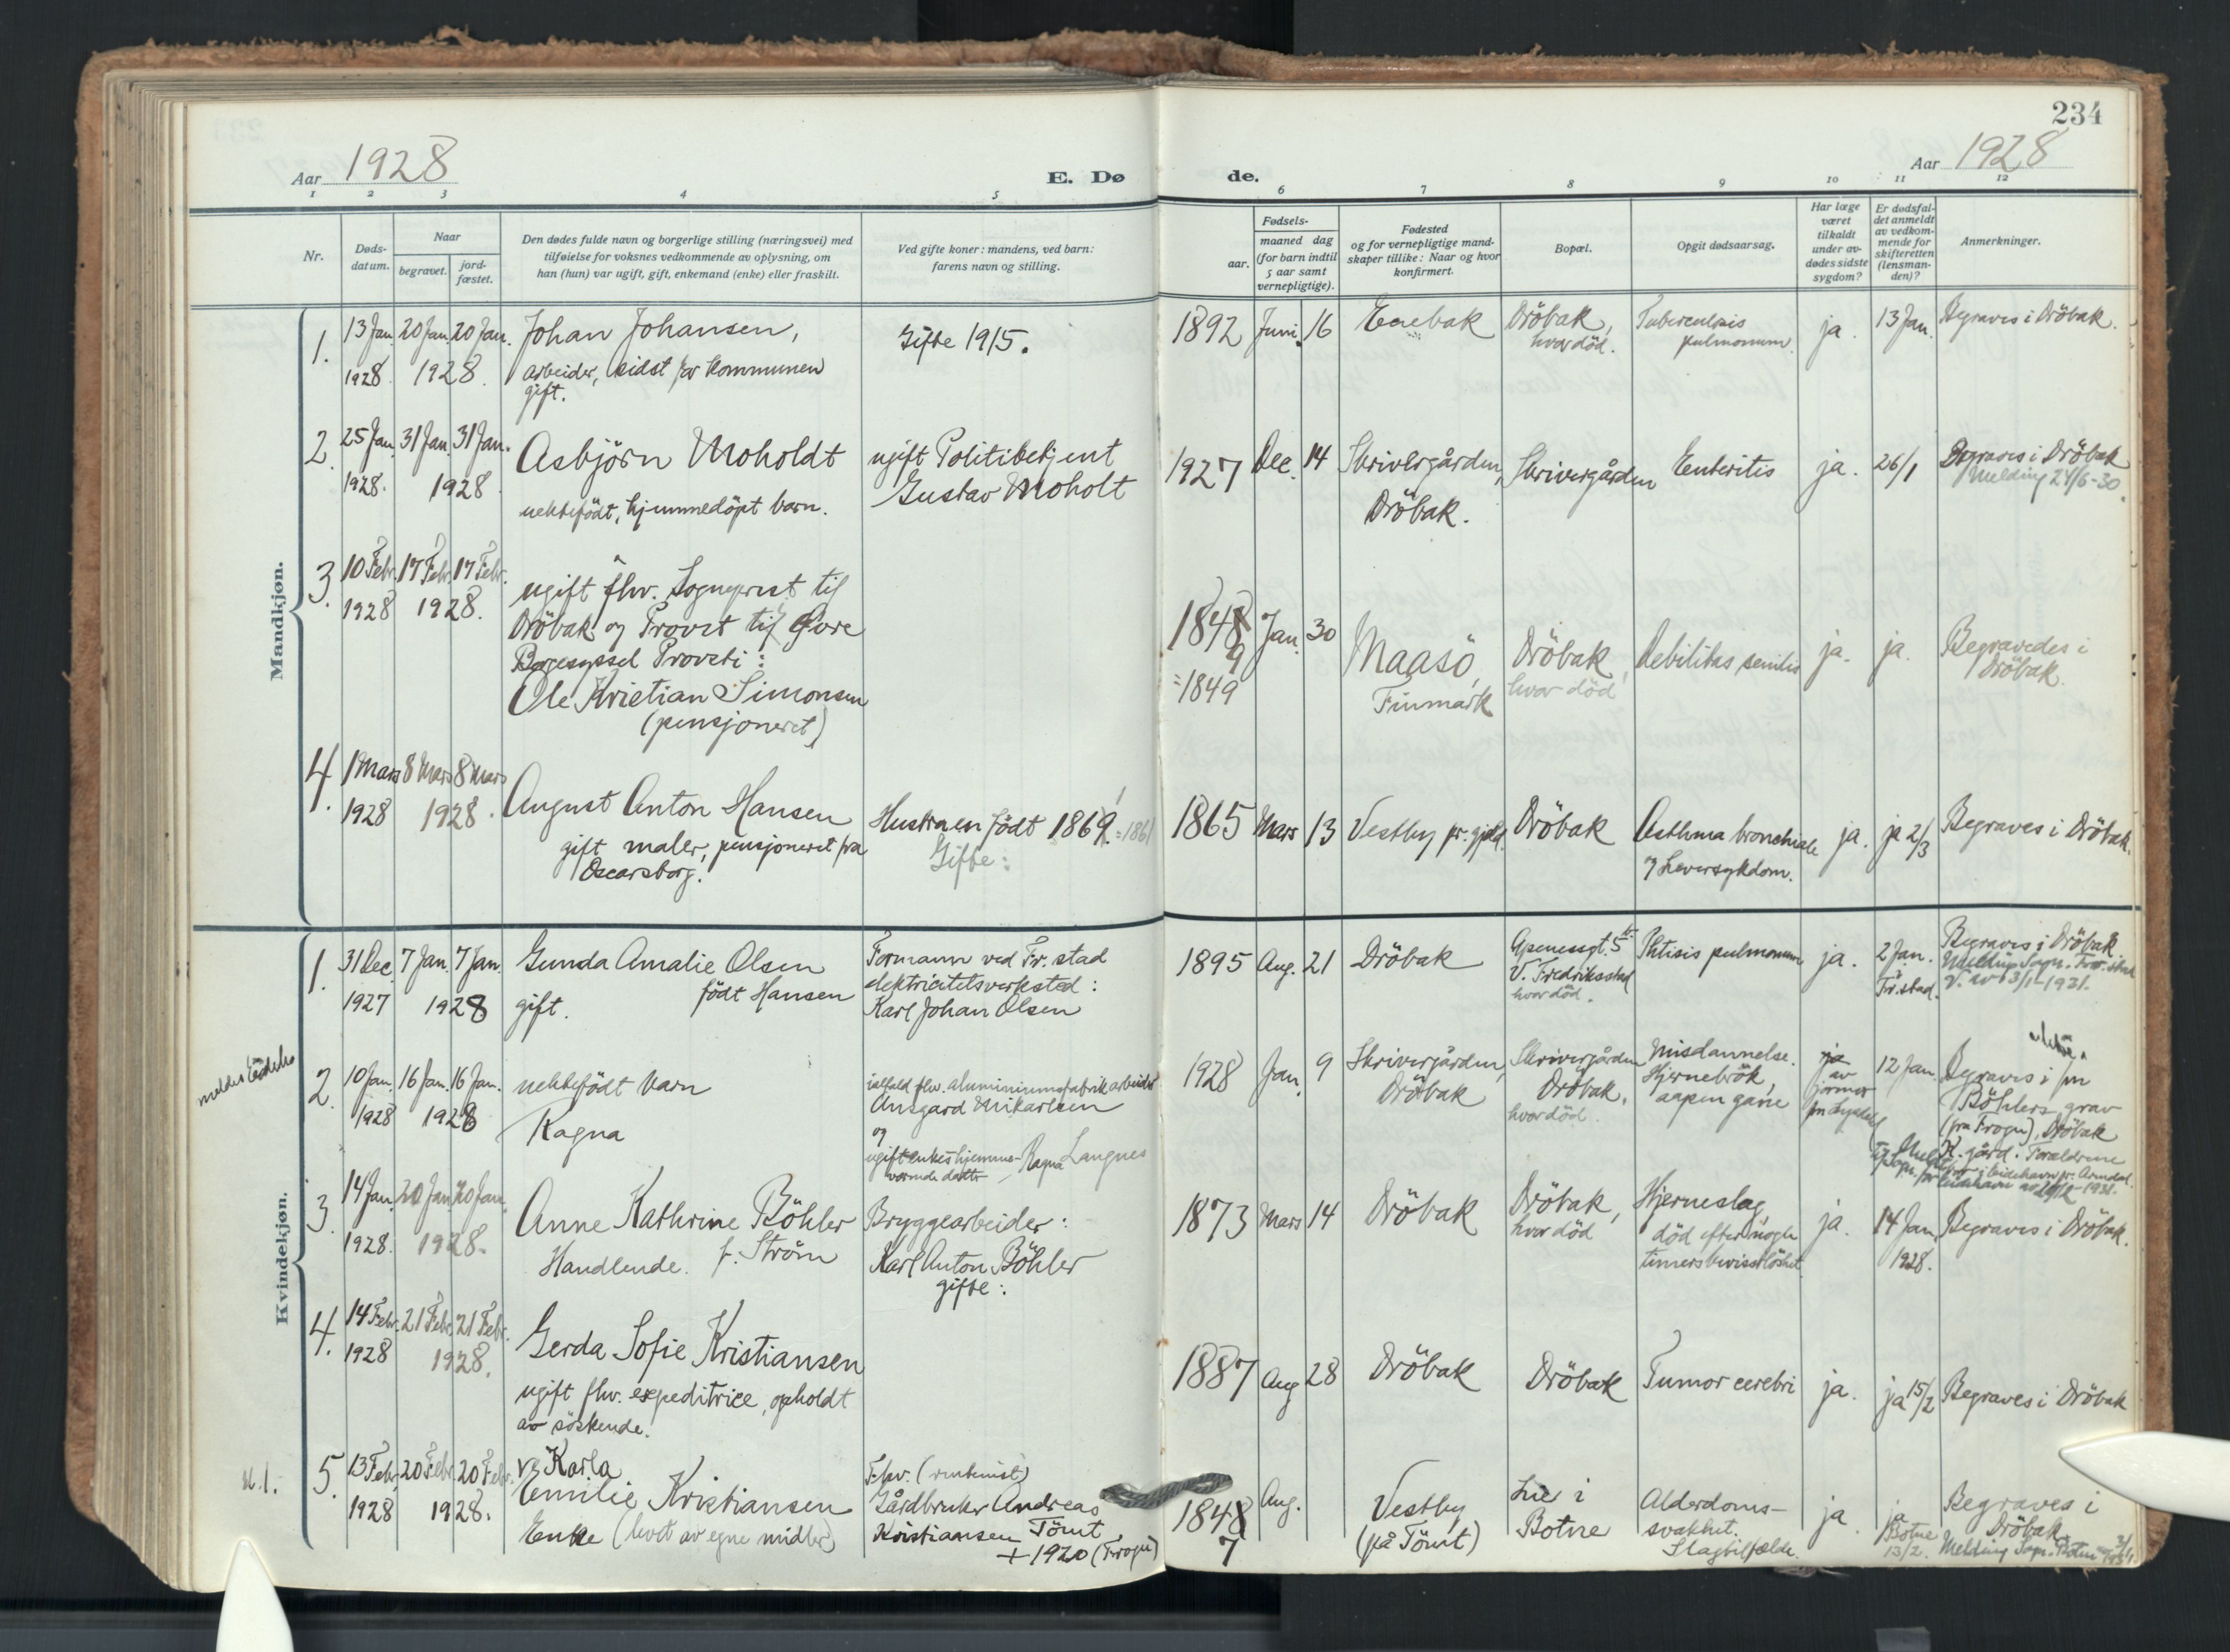 234
Aar 1928
E. Dø
de.
Aar 1928
1 2 3 4 5 6 7 8 9 10 11 12
Nr.
Døds-
datum.
Naar
begravet.
jord-
fæstet.
Den dødes fulde navn og borgerlige stilling (næringsvei) med
tilføielse for voksnes vedkommende av oplysning, om
han (hun) var ugift, gift, enkemand (enke) eller fraskilt.
Ved gifte koner: mandens, ved barn:
farens navn og stilling.
Fødsels-
aar.
maaned dag
(for barn indtil
5 aar samt
vernepligtige).
Fødested
og for vernepligtige mand-
skaper tillike: Naar og hvor
konfirmert.
Bopæl.
Opgit dødsaarsag.
Har læge
været
tilkaldt
under av-
dødes sidste
sygdom?
Er dødsfal-
det anmeldt
av vedkom-
mende for
skifteretten
(lensman-
den)?
Anmerkninger.
Mandkjøn.
1.
13 Jan.
1928.
20 Jan. 20 Jan.
1928.
Johan Johansen,
arbeider, sidst for kommunen
gift.
Gifte 1915.
1892 Juni. 16
Enebak
Dröbak,
hvor död.
Tuberculosis
pulmonum.
ja.
13 Jan.
Begraves i Dröbak.
2.
25 Jan.
1928.
31 Jan. 31 Jan.
1928
Asbjörn Moholdt
uektefödt, hjemmedöpt barn.
ugift Politibetjent
Gustav Moholt
1927 Dec. 14
Skrivergården,
Dröbak.
Skrivergården
Enteritis
ja.
26/1
Begraves i Dröbak
Melding 24/6-30.
3.
10 Febr.
1928
17 Febr. 17 Febr.
1928.
ugift fhv. Sogneprest til
Dröbak og Provst til Övre
Borgesyssel Provsti:
Ole Kristian Simonsen
(pensjoneret)
1848
9
=1849
Jan. 30
Maasö,
Finmark
Dröbak,
hvor död
Debilitas senilis
ja.
ja.
Begravedes i
Dröbak.
4.
1 Mars
1928
8 Mars 8 Mars
1928.
August Anton Hansen
gift maler, pensjoneret fra
Oscarsborg.
Hustruen födt 1869. =1861
Gifte:
1865 Mars 13
Vestby pr.gjeld.
Dröbak
Asthma bronchiale
og Leversykdom.
ja.
ja 2/3
Begraves i Dröbak.
Kvindekjøn.
1.
31 Dec.
1927
7 Jan. 7 Jan.
1928
Gunda Amalie Olsen
födt Hansen
gift.
Formann ved Fr.stad
elektricitetsverksted:
Karl Johan Olsen
1895 Aug. 21
Dröbak
V. Fredriksstad
hvor död.
Phtisis pulmonum
ja.
2 Jan.
Fr.stad.
Begraves i Dröbak
2.
10 Jan.
1928
16 Jan. 16 Jan.
1928
uektefödt barn
Ragna
ialfald fhv. aluminiumsfabrikarbeider
Ansgard Mikarlsen
og
ugift enkes hjemme-
værende datter Ragna Langnes
1928 Jan. 9
Skrivergården,
Dröbak
Skrivergården
Dröbak,
hvor död.
Misdannelse.
Hjernebrök,
aapen gane
ja
av
jormor
12 Jan.
Begraves i fru
Böhlers grav
(fra Frogn), Dröbak
K.-gård. Forældrene
3.
14 Jan.
1928.
20 Jan. 20 Jan.
1928.
Anne Kathrine Böhler
Handlende. f. Ström
Bryggearbeider:
Karl Anton Böhler
gifte:
1873 Mars 14
Dröbak
Dröbak,
hvor död
Hjerneslag,
död efter nogle
timers bevisstlöshet.
ja.
14 Jan.
1928.
Begraves i Dröbak.
4.
14 Febr.
1928
21 Febr. 21 Febr.
1928.
Gerda Sofie Kristiansen
ugift fhv. expeditrice, opholdt
av söskende.
1887 Aug 28
Dröbak
Dröbak
Tumor cerebri
ja.
ja 15/2
Begraves i Dröbak
5.
13 Febr.
1928
20 Febr. 20 Febr.
1928.
Karla
Emilie Kristiansen
Enke (levet av egne midler)
Fhv. (rentenist)
Gårdbruker Andreas
Kristiansen Tömt
+ 1920 (Frogn)
1848
7
Aug.
Vestby
(på Tömt)
Lie i
Botne
Alderdoms-
svakhet.
Slagtilfælde.
ja
ja
Botne
13/2.
Begraves i
Dröbak.